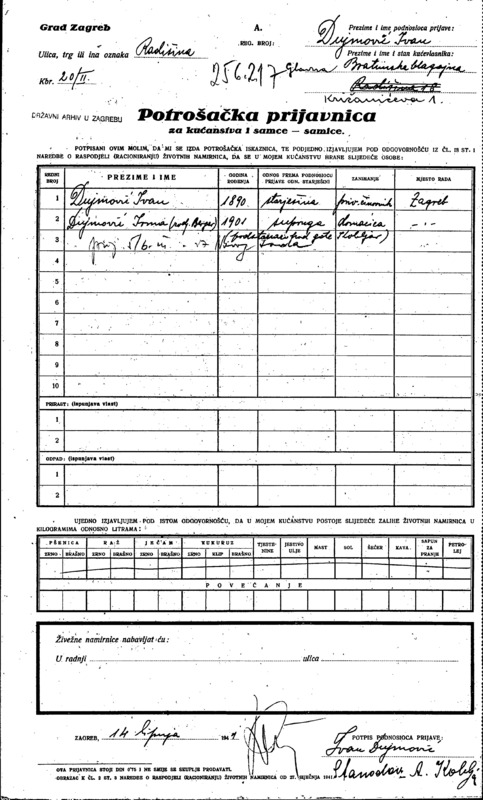 Grad Zagreb
A.
Prezime i ime podnosioca prijave:
Dujmović Ivan
Ulica, trg ili ina oznaka Radišina
REG. BROJ:
Prezime i ime stan. i kućevlasnika:
256.217 Glavna Bratinska blagajna
Kbr. 20/II.
Radišina
Križanićeva 1.
DRŽAVNI ARHIV U ZAGREBU
Potrošačka prijavnica
za kućanstva i samce – samice.
POTPISANI OVIM MOLIM, DA MI SE IZDA POTROŠAČKA ISKAZNICA, TE PODJEDNO IZJAVLJUJEM POD ODGOVORNOŠĆU IZ ČL. 18 ST. 1
NAREDBE O RASPODJELI (RACIONIRANJU) ŽIVOTNIH NAMIRNICA, DA SE U MOJEM KUĆANSTVU HRANE SLIJEDEĆE OSOBE:
REDNI BROJ PREZIME I IME GODINA ROĐENJA ODNOS PREMA PODNOSIOCU PRIJAVE ODN. STARJEŠINI ZANIMANJE MJESTO RADA
1 Dujmović Ivan 1890 starješina priv. činovnik Zagreb
2 Dujmović 1901 supruga domaćica -..-
3
4
5
6
7
8
9
10
PRIRAST: (ispunjava vlast)
1
2
ODPAD: (ispunjava vlast)
1
2
UJEDNO IZJAVLJUJEM POD ISTOM ODGOVORNOŠĆU, DA U MOJEM KUĆANSTVU POSTOJE SLIJEDEĆE ZALIHE ŽIVOTNIH NAMIRNICA U
KILOGRAMIMA ODNOSNO LITRAMA:
PŠENICA RAŽ JEČAM KUKURUZ TJESTENINE JESTIVO ULJE MAST SOL ŠEĆER KAVA SAPUN ZA PRANJE PETROLEJ
ZRNO BRAŠNO ZRNO BRAŠNO ZRNO BRAŠNO ZRNO KLIP BRAŠNO
POVEĆANJE
Živežne namirnice nabavljat ću:
U radnji ulica
ZAGREB, 14 lipnja 1941
POTPIS PODNOSIOCA PRIJAVE:
Ivan Dujmović
OVA PRIJAVNICA STOJI DIN 0'75 I NE SMIJE SE SKUPLJE PRODAVATI.
OBRAZAC K ČL. 2 ST. 3 NAREDBE O RASPODJELI (RACIONIRANJU) ŽIVOTNIH NAMIRNICA OD 27. SIJEČNJA 1941.